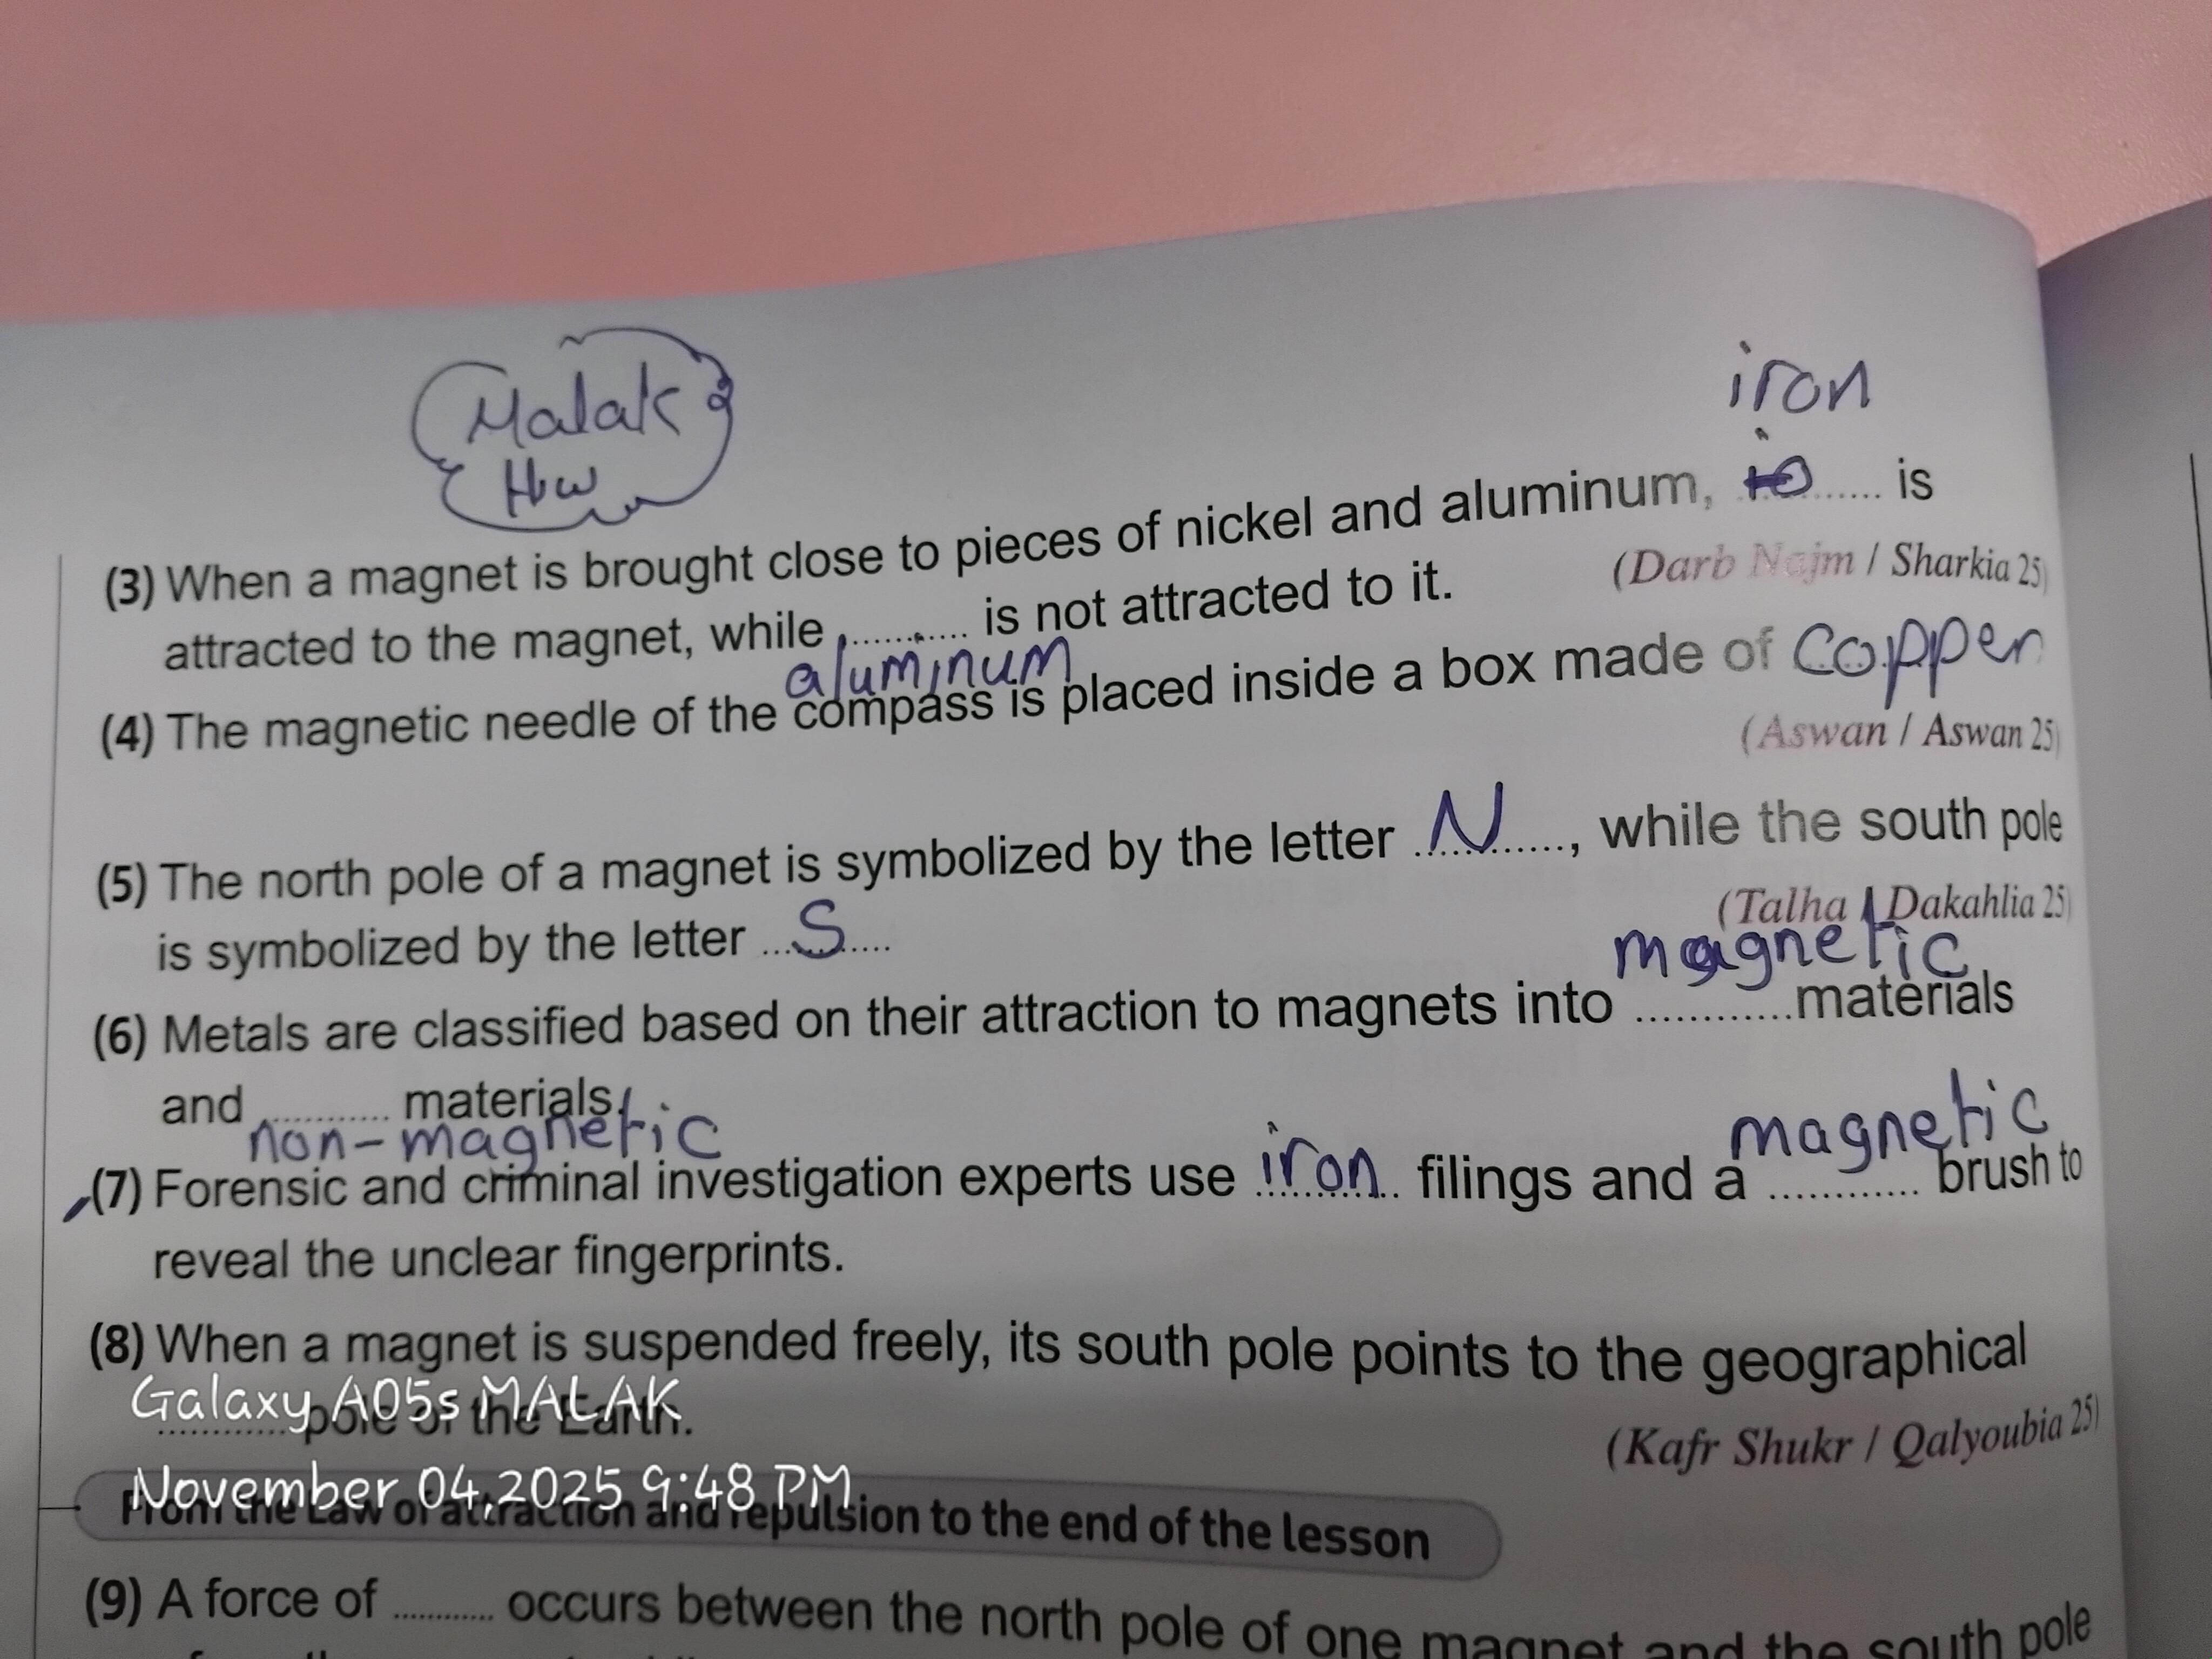 Malak
Hw
iron
(3) When a magnet is brought close to pieces of nickel and aluminum, ............ is
(Darb Najm / Sharkia 25)
attracted to the magnet, while ............ is not attracted to it.
aluminum
(4) The magnetic needle of the compass is placed inside a box made of copper
(Aswan / Aswan 25)
(5) The north pole of a magnet is symbolized by the letter ...N..., while the south pole
(Talha / Dakahlia 25)
is symbolized by the letter ...S...
magnetic
(6) Metals are classified based on their attraction to magnets into ............ materials
and ............ materials.
non-magnetic
magnetic
(7) Forensic and criminal investigation experts use iron filings and a ............ brush to
reveal the unclear fingerprints.
(8) When a magnet is suspended freely, its south pole points to the geographical
............ pole of the Earth.
Galaxy A05s MALAK
(Kafr Shukr / Qalyoubia 25)
November 04,2025 9:48 PM
From the Law of attraction and repulsion to the end of the lesson
(9) A force of ............ occurs between the north pole of one magnet and the south pole